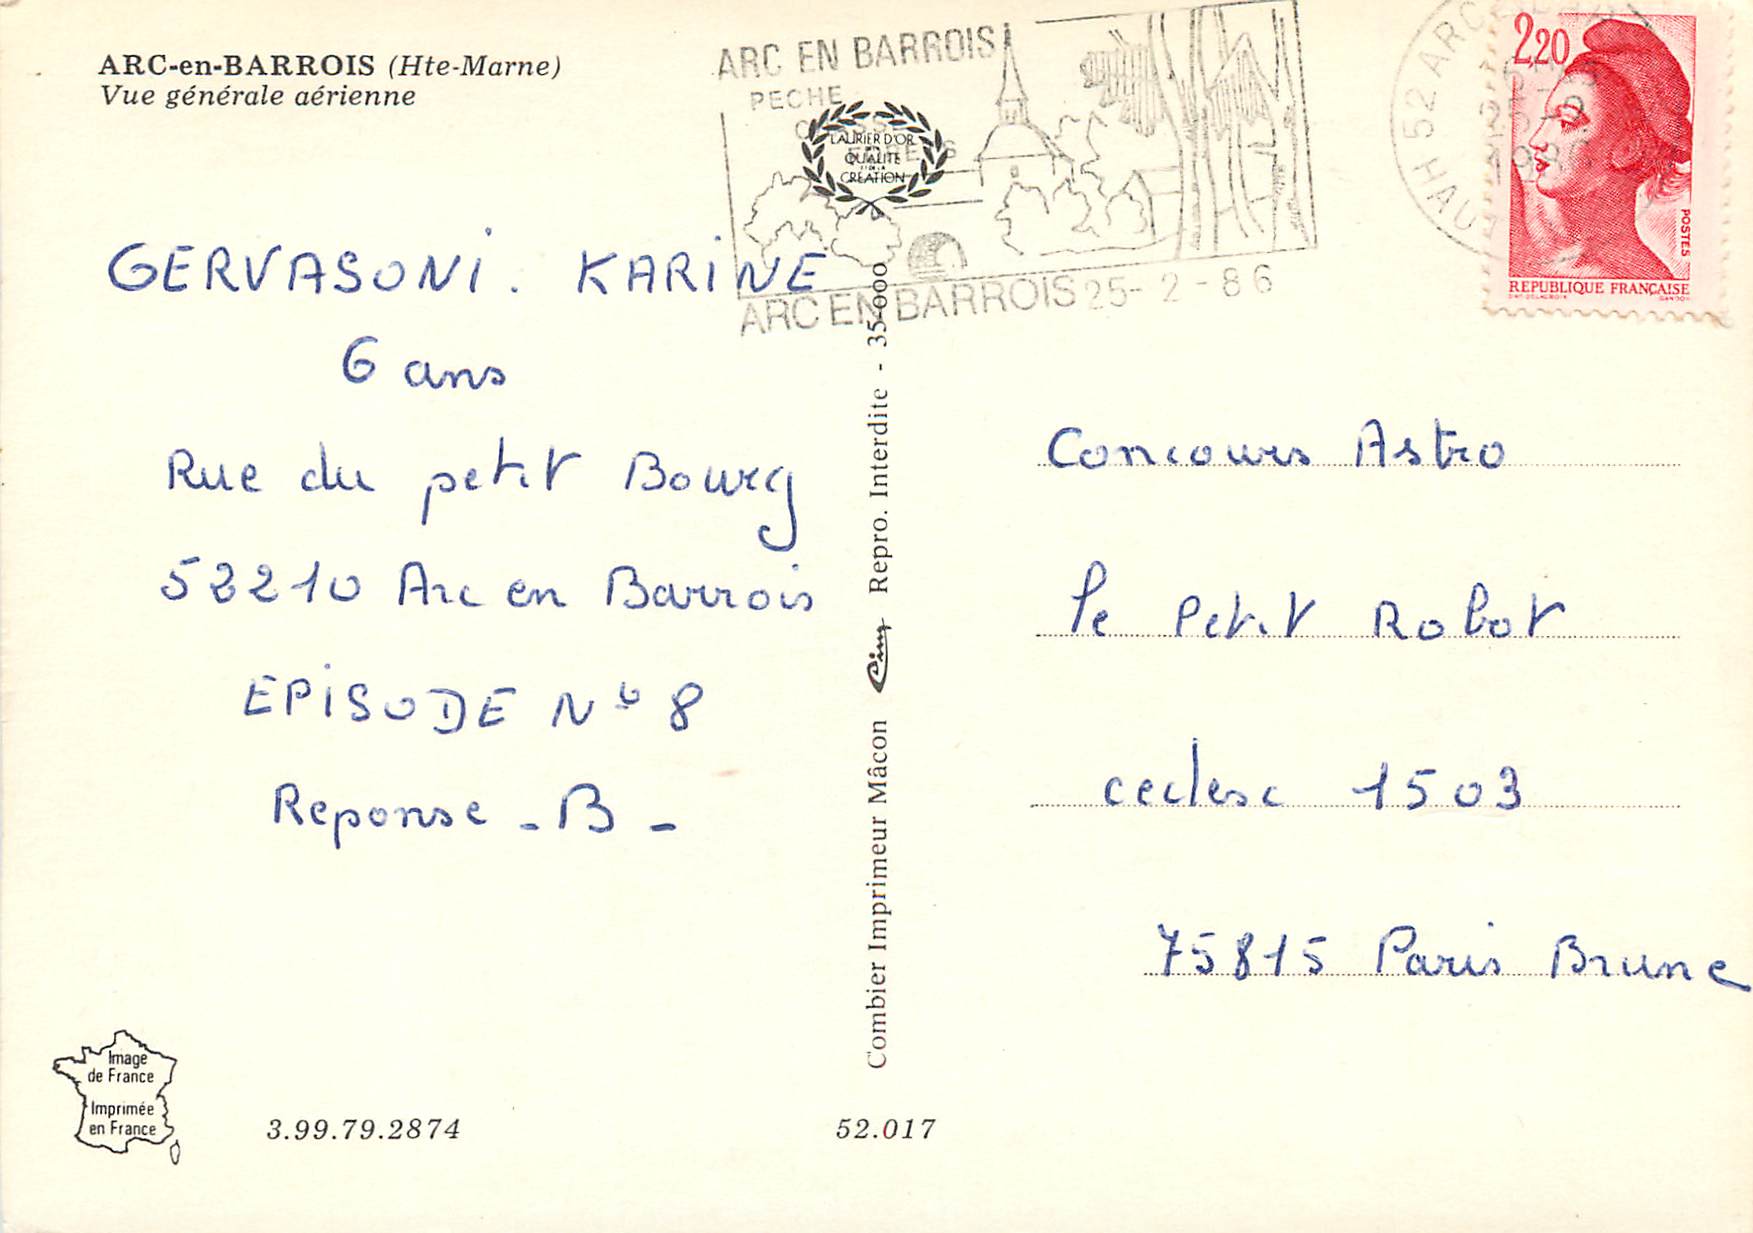 ARC-en-BARROIS (Hte-Marne)
Vue générale aérienne
ARC EN BARROIS
PECHE
LAURIER D'OR
QUALITE
CREATION
ARC EN BARROIS 25-2-86
52 ARC
HAU
2,20
POSTES
REPUBLIQUE FRANÇAISE
GERVASONI. KARINE
6 ans
Rue du petit Bourg
52210 Arc en Barrois
EPISODE No 8
Reponse - B -
Combier Imprimeur Mâcon Cim Repro. Interdite - 35-000
Concours Astro
le Petit Robot
cedesc 1503
75815 Paris Brune
Image
de France
Imprimée
en France
3.99.79.2874
52.017